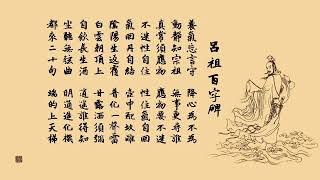 呂祖百字碑
養氣忘言守 降心為不為
動靜知宗祖 無事更尋誰
真常須應物 應物要不迷
不迷性自住 性住氣自回
氣回丹自結 壺中配坎離
陰陽生返復 普化一聲雷
白雲朝頂上 甘露灑須彌
自飲長生酒 逍遙誰得知
坐聽無弦曲 明通造化機
都來二十句 端的上天梯